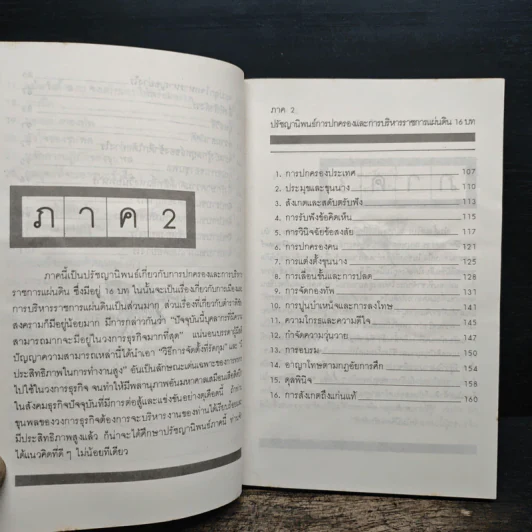 ภาค 2
ภาคนี้เป็นปรัชญานิพนธ์เกี่ยวกับการปกครองและการบริหาร
ราชการแผ่นดิน ซึ่งมีอยู่ 16 บท ในนั้นจะเป็นเรื่องเกี่ยวกับการเมืองและ
การบริหารราชการแผ่นดินเป็นส่วนมาก ส่วนเรื่องที่เกี่ยวกับตำราพิชัย
สงครามก็มีอยู่น้อยมาก มีการกล่าวกันว่า "ปัจจุบันนี้บุคลากรที่มีความ
สามารถมากจะมีอยู่ในวงการธุรกิจมากที่สุด" แน่นอนบรรดาผู้มีสติ
ปัญญาความสามารถเหล่านี้ได้นำเอา "วิธีการจัดตั้งที่รัดกุม" และ
ประสิทธิภาพในการทำงานสูง" อันเป็นลักษณะเด่นเฉพาะของการทหาร
ไปใช้ในวงการธุรกิจ จนทำให้มีพลานุภาพอันมหาศาลเหมือนเสือติดปีก
ในสังคมธุรกิจปัจจุบันที่มีการต่อสู้และแข่งขันอย่างดุเดือดนี้
ขุนพลของวงการธุรกิจต้องการจะบริหารงานของท่านได้เรียบร้อยและ
มีประสิทธิภาพสูงแล้ว ก็น่าจะได้ศึกษาปรัชญานิพนธ์ภาคนี้
ได้แนวคิดที่ดี ๆ ไม่น้อยทีเดียว
ภาค 2
ปรัชญานิพนธ์การปกครองและการบริหารราชการแผ่นดิน 16 บท
1. การปกครองประเทศ 107
2. ประมุขและขุนนาง 110
3. สังเกตและสดับตรับฟัง 113
4. การรับฟังข้อคิดเห็น 115
5. การวินิจฉัยข้อสงสัย 117
6. การปกครองคน 121
7. การแต่งตั้งขุนนาง 125
8. การเลื่อนชั้นและการปลด 128
9. การจัดกองทัพ 131
10. การปูนบำเหน็จและการลงโทษ 141
11. ความโกรธและความดีใจ 145
12. กำจัดความวุ่นวาย 147
13. การอบรม 150
14. อาญาโทษตามกฎอัยการศึก 154
15. ดุลพินิจ 158
16. การสังเกตถึงแก่นแท้ 160